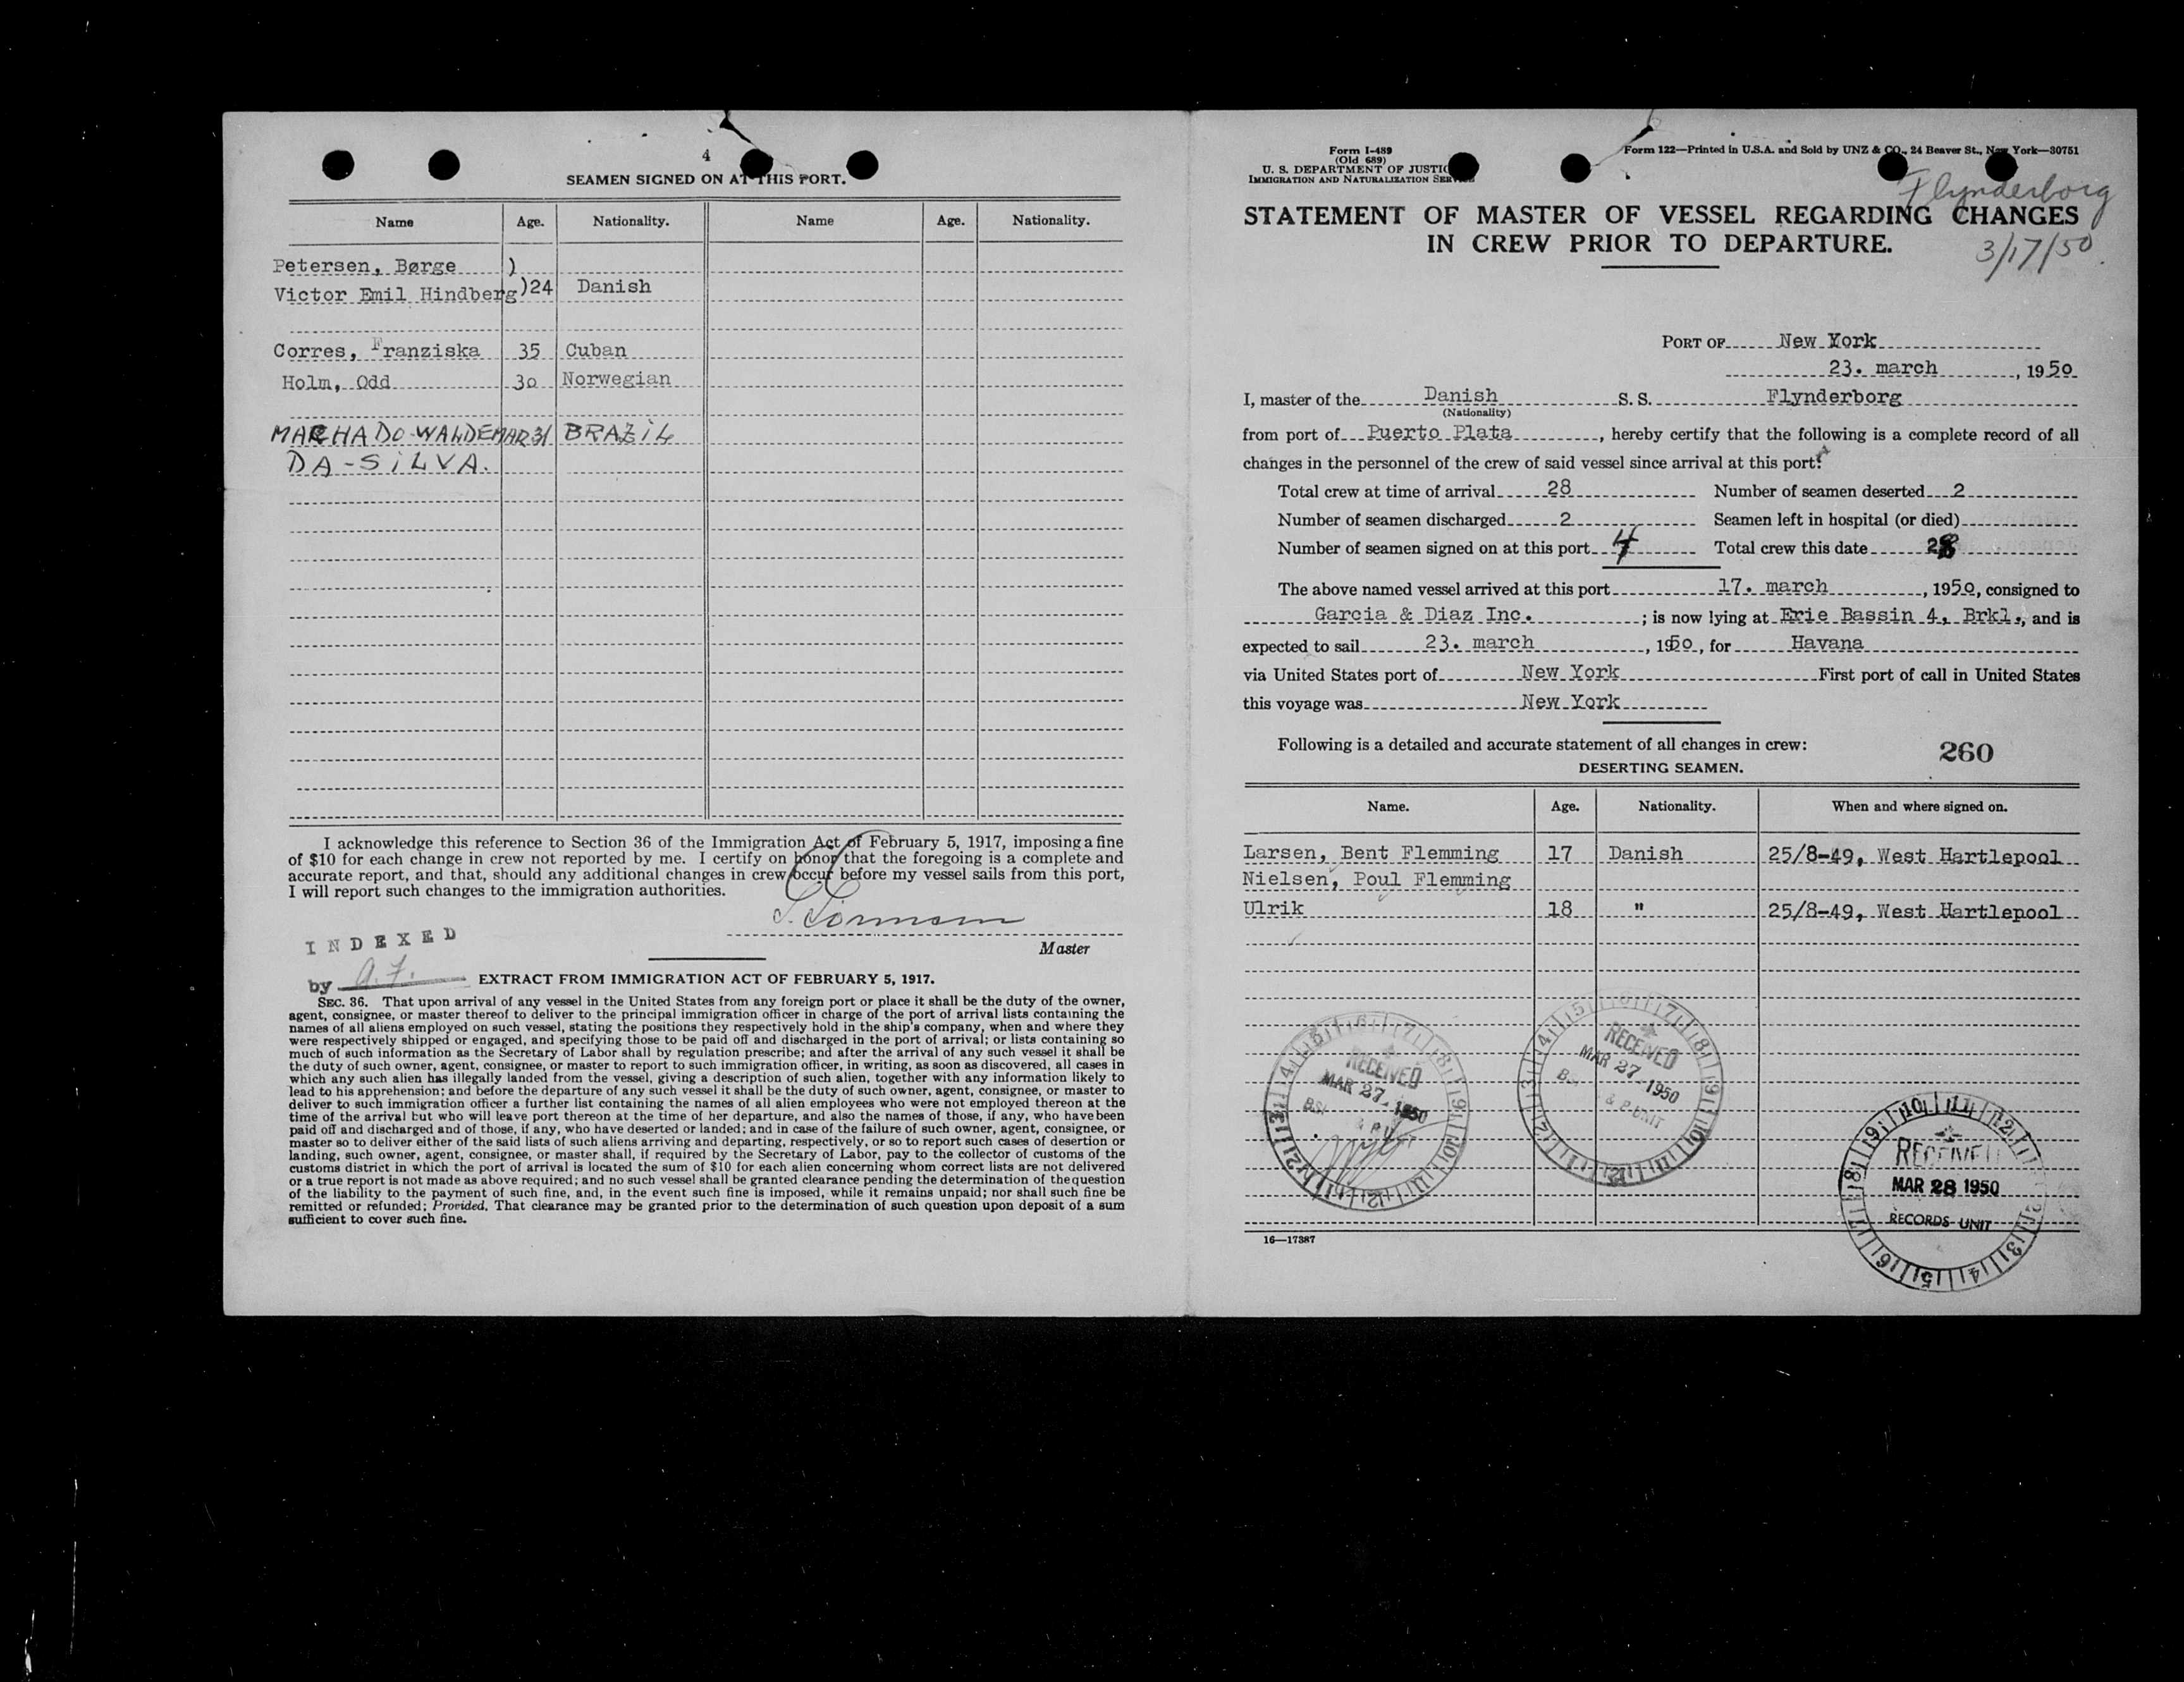 4
SEAMEN SIGNED ON AT THIS PORT.
Name Age. Nationality. Name Age. Nationality.
Petersen, Børge )
Victor Emil Hindberg )24 Danish
Corres, Franziska 35 Cuban
Holm, Odd 30 Norwegian
MACHADO-WALDEMAR 31 BRAZIL
DA-SILVA.
I acknowledge this reference to Section 36 of the Immigration Act of February 5, 1917, imposing a fine
of $10 for each change in crew not reported by me. I certify on honor that the foregoing is a complete and
accurate report, and that, should any additional changes in crew occur before my vessel sails from this port,
I will report such changes to the immigration authorities.
Master
INDEXED
by A.F.
EXTRACT FROM IMMIGRATION ACT OF FEBRUARY 5, 1917.
SEC. 36. That upon arrival of any vessel in the United States from any foreign port or place it shall be the duty of the owner,
agent, consignee, or master thereof to deliver to the principal immigration officer in charge of the port of arrival lists containing the
names of all aliens employed on such vessel, stating the positions they respectively hold in the ship's company, when and where they
were respectively shipped or engaged, and specifying those to be paid off and discharged in the port of arrival; or lists containing so
much of such information as the Secretary of Labor shall by regulation prescribe; and after the arrival of any such vessel it shall be
the duty of such owner, agent, consignee, or master to report to such immigration officer, in writing, as soon as discovered, all cases in
which any such alien has illegally landed from the vessel, giving a description of such alien, together with any information likely to
lead to his apprehension; and before the departure of any such vessel it shall be the duty of such owner, agent, consignee, or master to
deliver to such immigration officer a further list containing the names of all alien employees who were not employed thereon at the
time of the arrival but who will leave port thereon at the time of her departure, and also the names of those, if any, who have been
paid off and discharged and of those, if any, who have deserted or landed; and in case of the failure of such owner, agent, consignee, or
master so to deliver either of the said lists of such aliens arriving and departing, respectively, or so to report such cases of desertion or
landing, such owner, agent, consignee, or master shall, if required by the Secretary of Labor, pay to the collector of customs of the
customs district in which the port of arrival is located the sum of $10 for each alien concerning whom correct lists are not delivered
or a true report is not made as above required; and no such vessel shall be granted clearance pending the determination of the question
of the liability to the payment of such fine, and, in the event such fine is imposed, while it remains unpaid; nor shall such fine be
remitted or refunded; Provided, That clearance may be granted prior to the determination of such question upon deposit of a sum
sufficient to cover such fine.
Form I-489
(Old 689)
U. S. DEPARTMENT OF JUSTICE
IMMIGRATION AND NATURALIZATION SERVICE
Form 122—Printed in U.S.A. and Sold by UNZ & CO., 24 Beaver St., New York—30751
Flynderborg
STATEMENT OF MASTER OF VESSEL REGARDING CHANGES
IN CREW PRIOR TO DEPARTURE.
3/17/50.
PORT OF New York
23. march, 1950
I, master of the Danish S. S. Flynderborg
(Nationality)
from port of Puerto Plata, hereby certify that the following is a complete record of all
changes in the personnel of the crew of said vessel since arrival at this port:
Total crew at time of arrival 28 Number of seamen deserted 2
Number of seamen discharged 2 Seamen left in hospital (or died)
Number of seamen signed on at this port 4 Total crew this date 28
The above named vessel arrived at this port 17. march, 1950, consigned to
Garcia & Diaz Inc. ; is now lying at Erie Bassin 4, Brkl., and is
expected to sail 23. march, 1950, for Havana
via United States port of New York First port of call in United States
this voyage was New York
Following is a detailed and accurate statement of all changes in crew:
260
DESERTING SEAMEN.
Name. Age. Nationality. When and where signed on.
Larsen, Bent Flemming 17 Danish 25/8-49, West Hartlepool
Nielsen, Poul Flemming
Ulrik 18 " 25/8-49, West Hartlepool
RECEIVED
MAR 27 1950
RECEIVED
MAR 27 1950
& P UNIT
RECEIVED
MAR 28 1950
RECORDS UNIT
16—17387